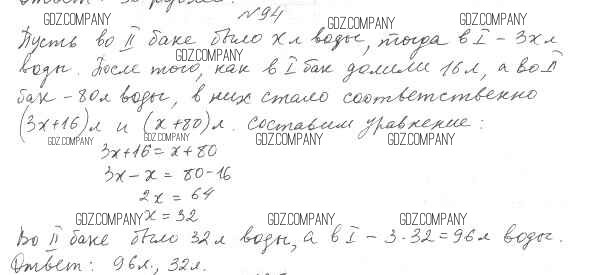 №94
Пусть во II баке было x л воды, тогда в I – 3x л
воды. После того, как в I бак долили 16 л, а во II
бак – 80 л воды, в них стало соответственно
(3x+16) л и (x+80) л. Составим уравнение:
3x+16 = x+80
3x – x = 80 – 16
2x = 64
x = 32
Во II баке было 32 л воды, а в I – 3·32 = 96 л воды.
Ответ: 96 л., 32 л.
GDZ.COMPANY
GDZ.COMPANY
GDZ.COMPANY
GDZ.COMPANY
GDZ.COMPANY
GDZ.COMPANY
GDZ.COMPANY
GDZ.COMPANY
GDZ.COMPANY
GDZ.COMPANY
GDZ.COMPANY